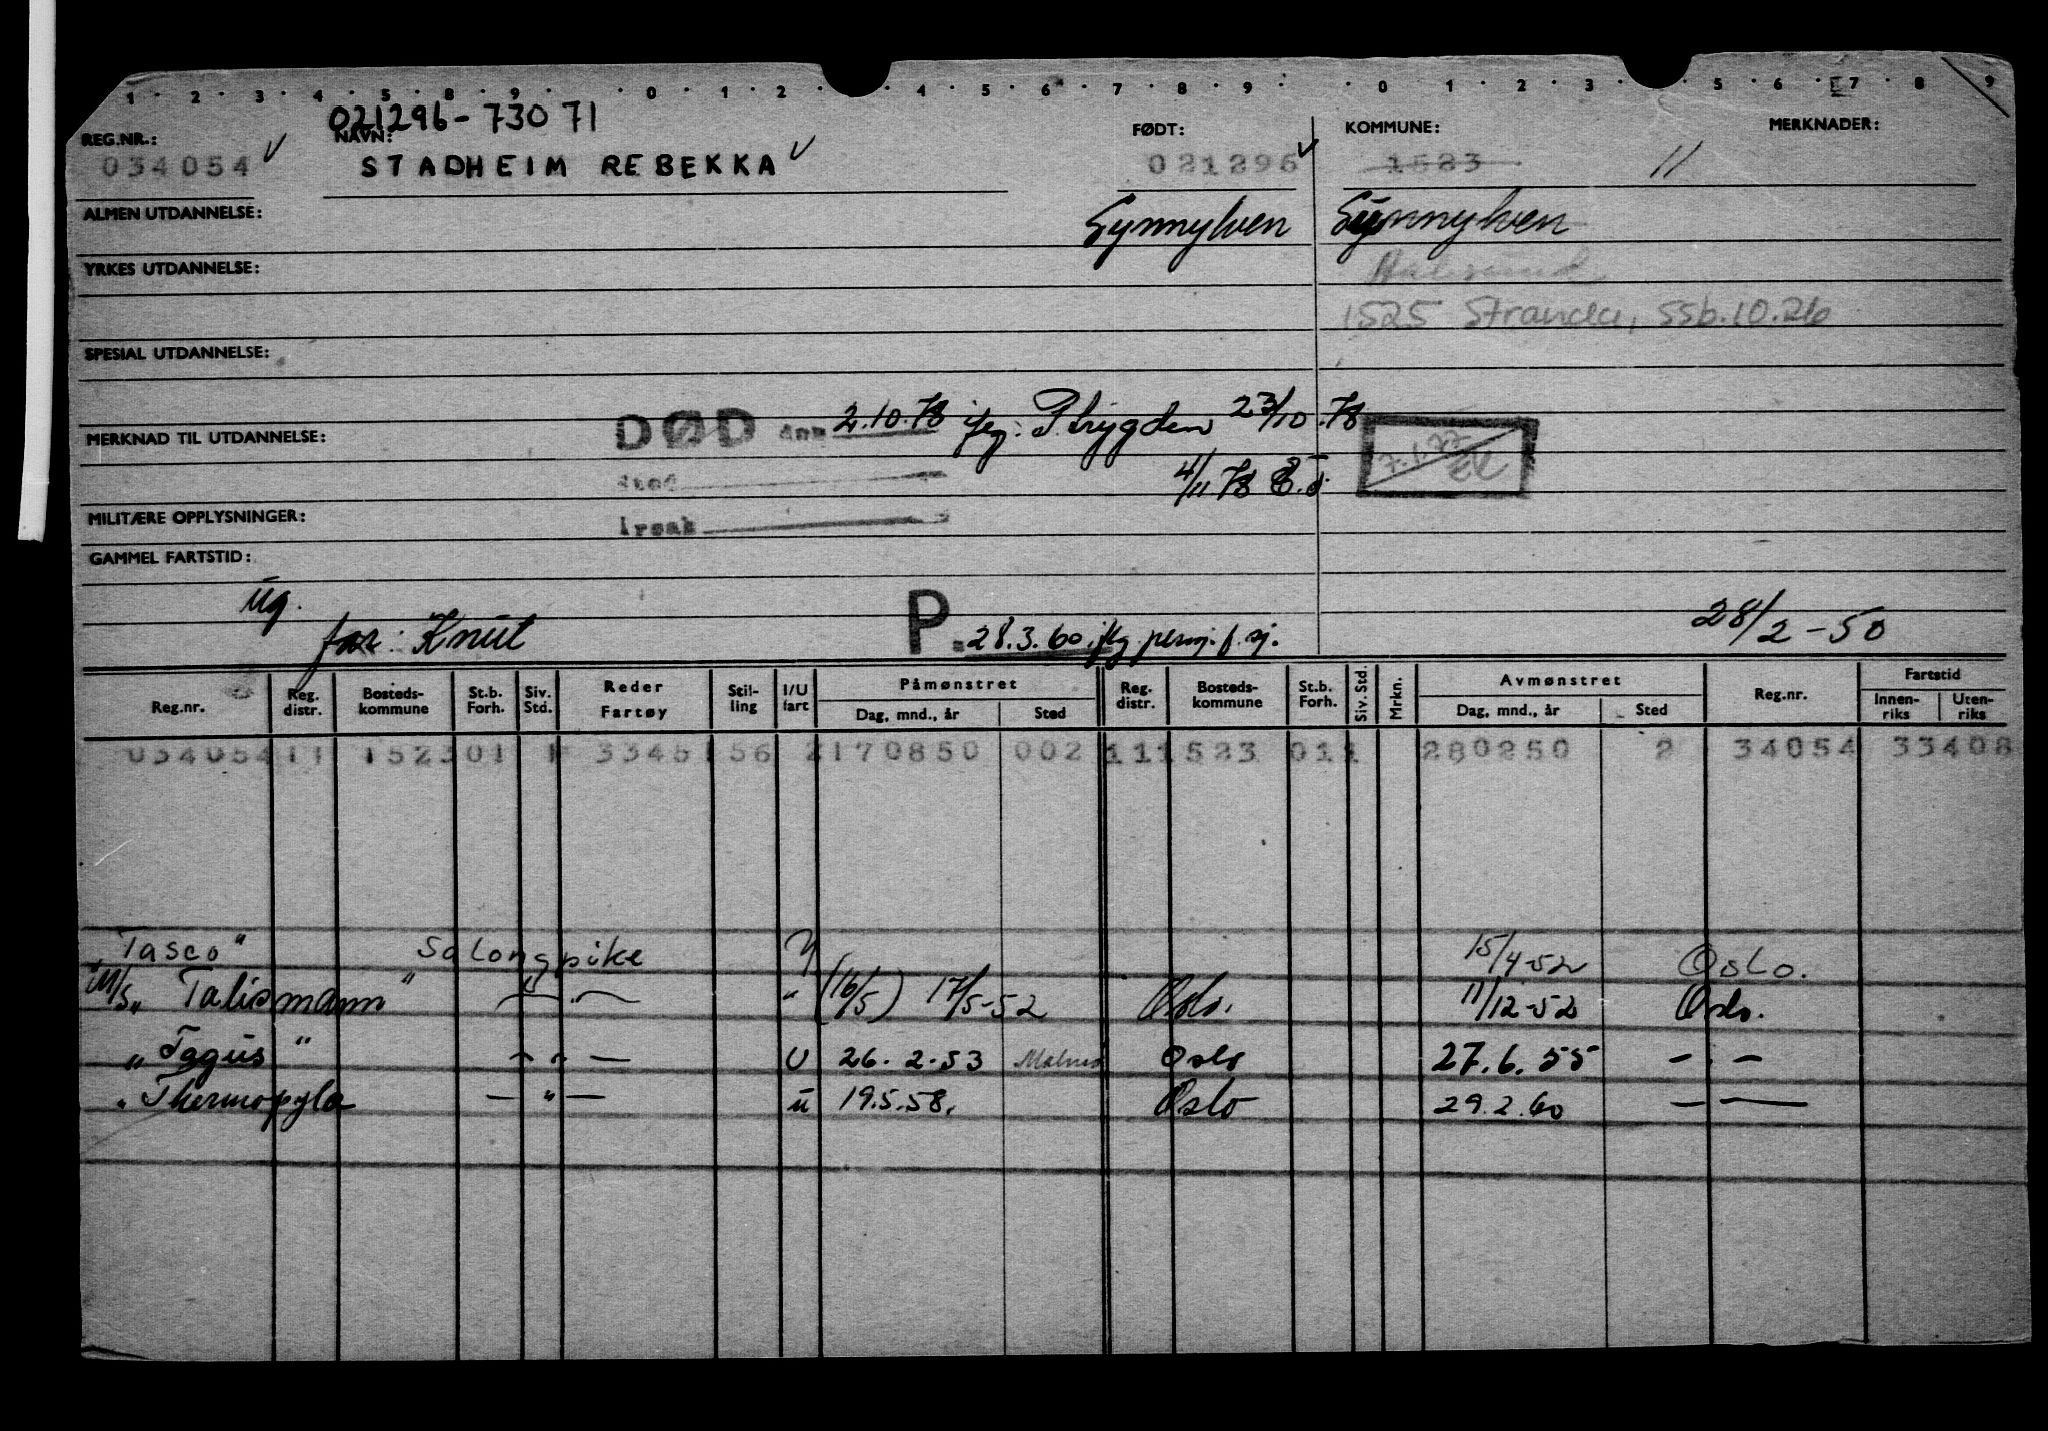 1 2 3 4 5 8 9 0 1 2 4 5 6 7 8 9 0 1 2 3 5 6 7 8 9
021296-73071
REG.NR.: NAVN: FØDT: KOMMUNE: MERKNADER:
034054 STADHEIM REBEKKA 021296 1523 11
ALMEN UTDANNELSE: Synnylven Synnylven
YRKES UTDANNELSE:
1525 Stranda, ssb.10.26
SPESIAL UTDANNELSE:
MERKNAD TIL UTDANNELSE: DØD den 2.10.78 jfg. P.trygden 23/10.78
7.1.77
sted 4/11 78
MILITÆRE OPPLYSNINGER: årsak
GAMMEL FARTSTID:
ug.
far: Knut P. 28.3.60 jfg perm. f. sj. 28/2-50
Reg.nr. Reg. distr. Bosteds-kommune St.b. Forh. Siv. Std. Reder Fartøy Stil-ling I/U fart Påmønstret Reg. distr. Bosteds-kommune St.b. Forh. Siv. Std. Mrkn. Avmønstret Reg.nr. Fartstid
Dag, mnd., år Sted Dag, mnd., år Sted Innen-riks Uten-riks
034054 11 152301 3345 156 2170850 002 111523 011 280250 2 34054 33408
„Tasco" Salongpike 15/4-52 Oslo.
M/S „Talismann" — " — " (16/5) 17/5-52 Oslo. 11/12-52 Oslo.
„Tagus" — " — U 26.2.53 Oslo 27.6.55 — " —
"Thermopylæ — " — u 19.5.58. Oslo 29.2.60 — " —